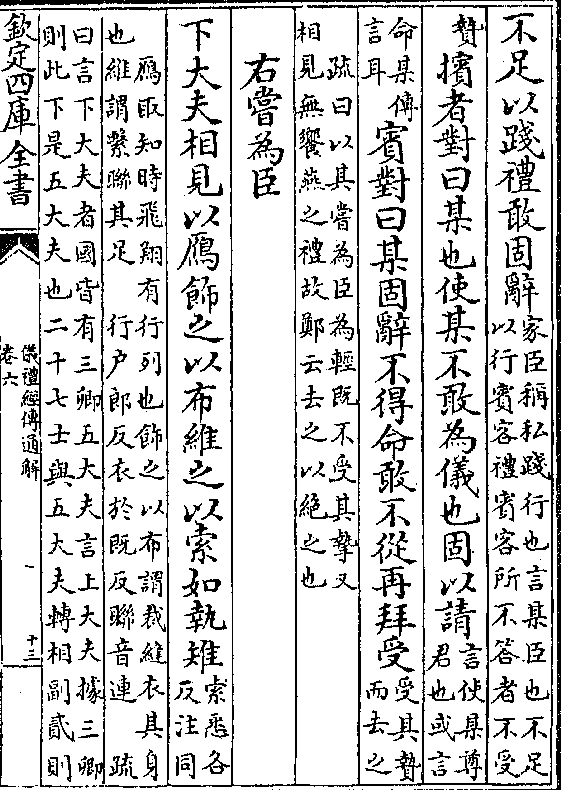 不足以踐禮敢固辭家臣稱私踐行也言某臣也不足
以行賓客禮賓客所不答者不受
贄擯者對曰某也使某不敢為儀也固以請言使某尊
君也或言
命某傳
言耳賓對曰某固辭不得命敢不從再拜受受其贄
而去之
疏曰以其嘗為臣為輕既不受其摯又
相見無饗燕之禮故鄭云去之以絶之也
右嘗為臣
下大夫相見以鴈飾之以布維之以索如執雉索悉各
反注同
鴈取知時飛翔有行列也飾之以布謂裁縫衣其身
也維謂繫聯其足 行户郎反衣於既反聯音連 疏
曰言下大夫者國皆有三卿五大夫言上大夫據三卿
則此下是五大夫也二十七士與五大夫轉相副貳則
欽定四庫全書
儀禮經傳通解
卷六
十三